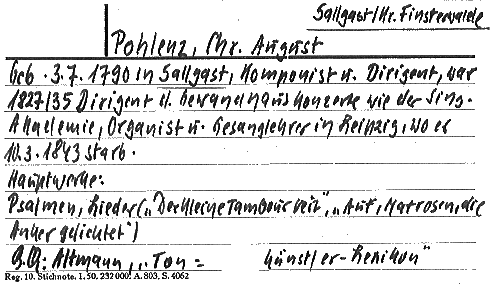 Sallgast/Kr. Finsterwalde
Pohlenz, Chr. August
Geb. 3.7.1790 in Sallgast, Komponist u. Dirigent, war
1827/35 Dirigent d. Gewandhauskonzerte wie der Sing-
Akademie, Organist u. Gesanglehrer in Leipzig, wo er
10.3.1843 starb.
Hauptwerke:
Psalmen, Lieder („Der kleine Tambour Veit", „Auf, Matrosen, die
Anker gelichtet")
Altmann, „Ton= künstler-Lexikon"
Reg. 10. Stichnote. 1,50, 232000. A. 803, S. 4062